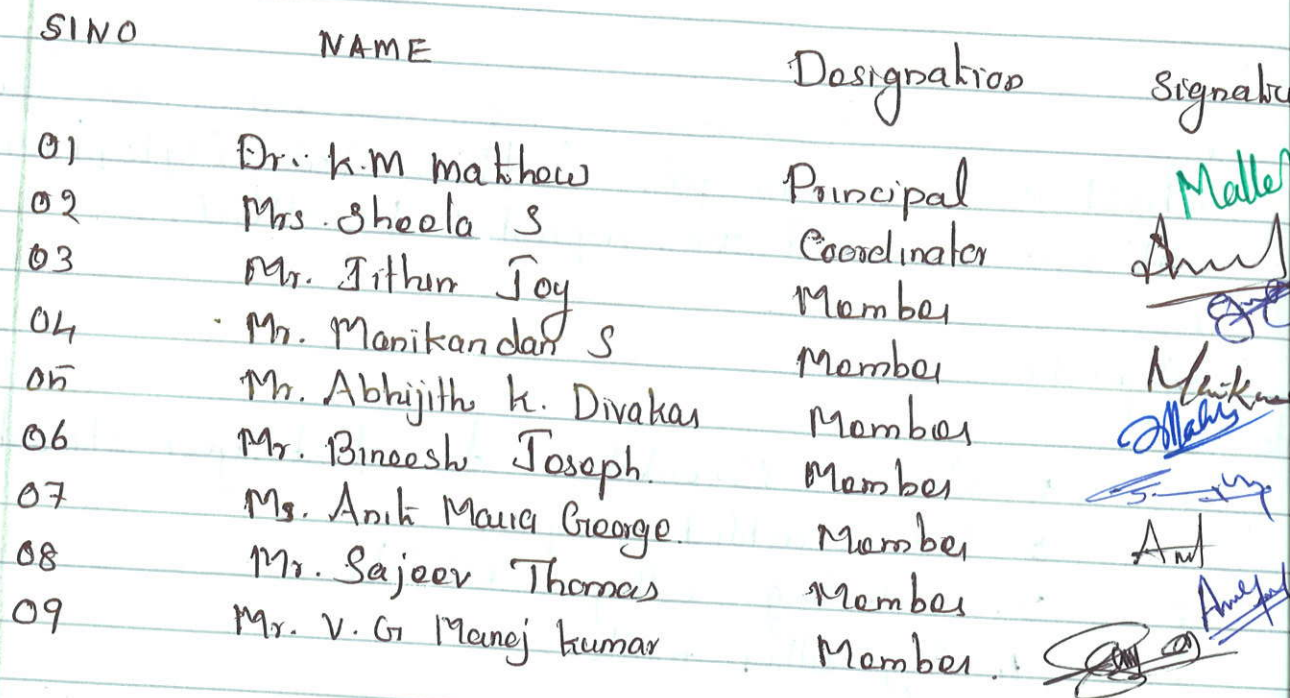 SINO NAME Designation Signatu
01 Dr. K.M Mathew Principal
02 Mrs. Sheela S Coordinator
03 Mr. Jithin Joy Member
04 Mr. Manikandan S Member
05 Mr. Abhijith K. Divakar Member
06 Mr. Bineesh Joseph. Member
07 Ms. Anit Maria George. Member
08 Mr. Sajeev Thomas Member
09 Mr. V. G Manoj Kumar Member.